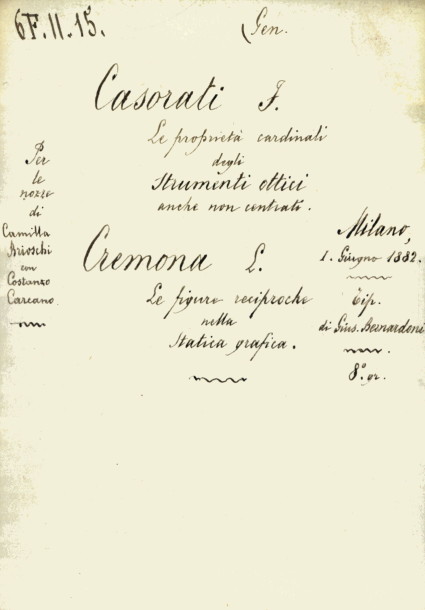 6F.II.15.
(Gen.
Casorati F.
Le proprietà cardinali
degli
Strumenti ottici
anche non centrati.
Per
le
nozze
di
Camilla
Brioschi
con
Costanzo
Carcano
Cremona L.
Le figure reciproche
nella
Statica grafica.
Milano,
1. Giugno 1882.
Tip.
di Gius. Bernardoni
8.° gr.